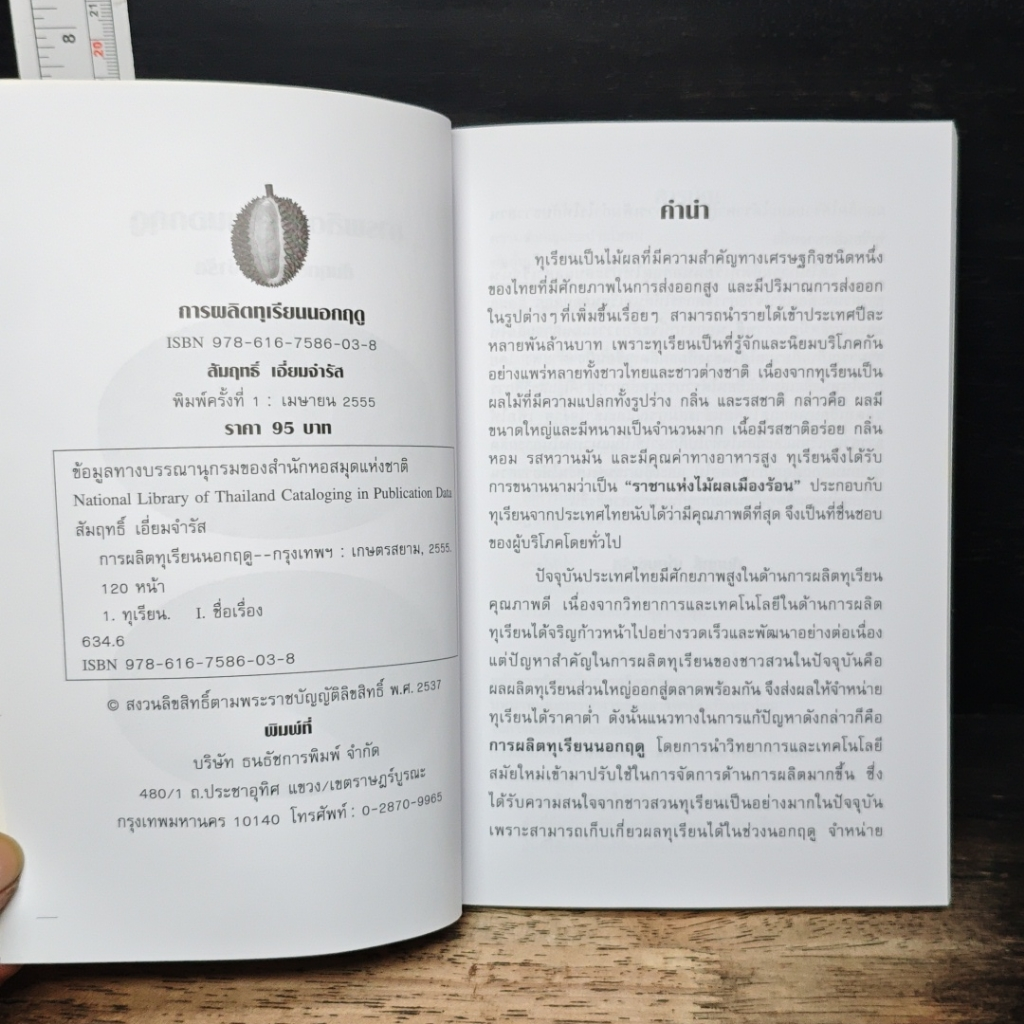 8
20
21
การผลิตทุเรียนนอกฤดู
ISBN 978-616-7586-03-8
สัมฤทธิ์ เอี่ยมจำรัส
พิมพ์ครั้งที่ 1 : เมษายน 2555
ราคา 95 บาท
ข้อมูลทางบรรณานุกรมของสำนักหอสมุดแห่งชาติ
National Library of Thailand Cataloging in Publication Data
สัมฤทธิ์ เอี่ยมจำรัส
การผลิตทุเรียนนอกฤดู--กรุงเทพฯ : เกษตรสยาม, 2555.
120 หน้า
1. ทุเรียน. I. ชื่อเรื่อง
634.6
ISBN 978-616-7586-03-8
© สงวนลิขสิทธิ์ตามพระราชบัญญัติลิขสิทธิ์ พ.ศ. 2537
พิมพ์ที่
บริษัท ธนธัชการพิมพ์ จำกัด
480/1 ถ.ประชาอุทิศ แขวง/เขตราษฎร์บูรณะ
กรุงเทพมหานคร 10140 โทรศัพท์ : 0-2870-9965
คำนำ
ทุเรียนเป็นไม้ผลที่มีความสำคัญทางเศรษฐกิจชนิดหนึ่ง
ของไทยที่มีศักยภาพในการส่งออกสูง และมีปริมาณการส่งออก
ในรูปต่างๆ ที่เพิ่มขึ้นเรื่อยๆ สามารถนำรายได้เข้าประเทศปีละ
หลายพันล้านบาท เพราะทุเรียนเป็นที่รู้จักและนิยมบริโภคกัน
อย่างแพร่หลายทั้งชาวไทยและชาวต่างชาติ เนื่องจากทุเรียนเป็น
ผลไม้ที่มีความแปลกทั้งรูปร่าง กลิ่น และรสชาติ กล่าวคือ ผลมี
ขนาดใหญ่และมีหนามเป็นจำนวนมาก เนื้อมีรสชาติอร่อย กลิ่น
หอม รสหวานมัน และมีคุณค่าทางอาหารสูง ทุเรียนจึงได้รับ
การขนานนามว่าเป็น “ราชาแห่งไม้ผลเมืองร้อน” ประกอบกับ
ทุเรียนจากประเทศไทยนับได้ว่ามีคุณภาพดีที่สุด จึงเป็นที่ชื่นชอบ
ของผู้บริโภคโดยทั่วไป
ปัจจุบันประเทศไทยมีศักยภาพสูงในด้านการผลิตทุเรียน
คุณภาพดี เนื่องจากวิทยาการและเทคโนโลยีในด้านการผลิต
ทุเรียนได้จริญก้าวหน้าไปอย่างรวดเร็วและพัฒนาอย่างต่อเนื่อง
แต่ปัญหาสำคัญในการผลิตทุเรียนของชาวสวนในปัจจุบันคือ
ผลผลิตทุเรียนส่วนใหญ่ออกสู่ตลาดพร้อมกัน จึงส่งผลให้จำหน่าย
ทุเรียนได้ราคาต่ำ ดังนั้นแนวทางในการแก้ปัญหาดังกล่าวก็คือ
การผลิตทุเรียนนอกฤดู โดยการนำวิทยาการและเทคโนโลยี
สมัยใหม่เข้ามาปรับใช้ในการจัดการด้านการผลิตมากขึ้น ซึ่ง
ได้รับความสนใจจากชาวสวนทุเรียนเป็นอย่างมากในปัจจุบัน
เพราะสามารถเก็บเกี่ยวผลทุเรียนได้ในช่วงนอกฤดู จำหน่าย